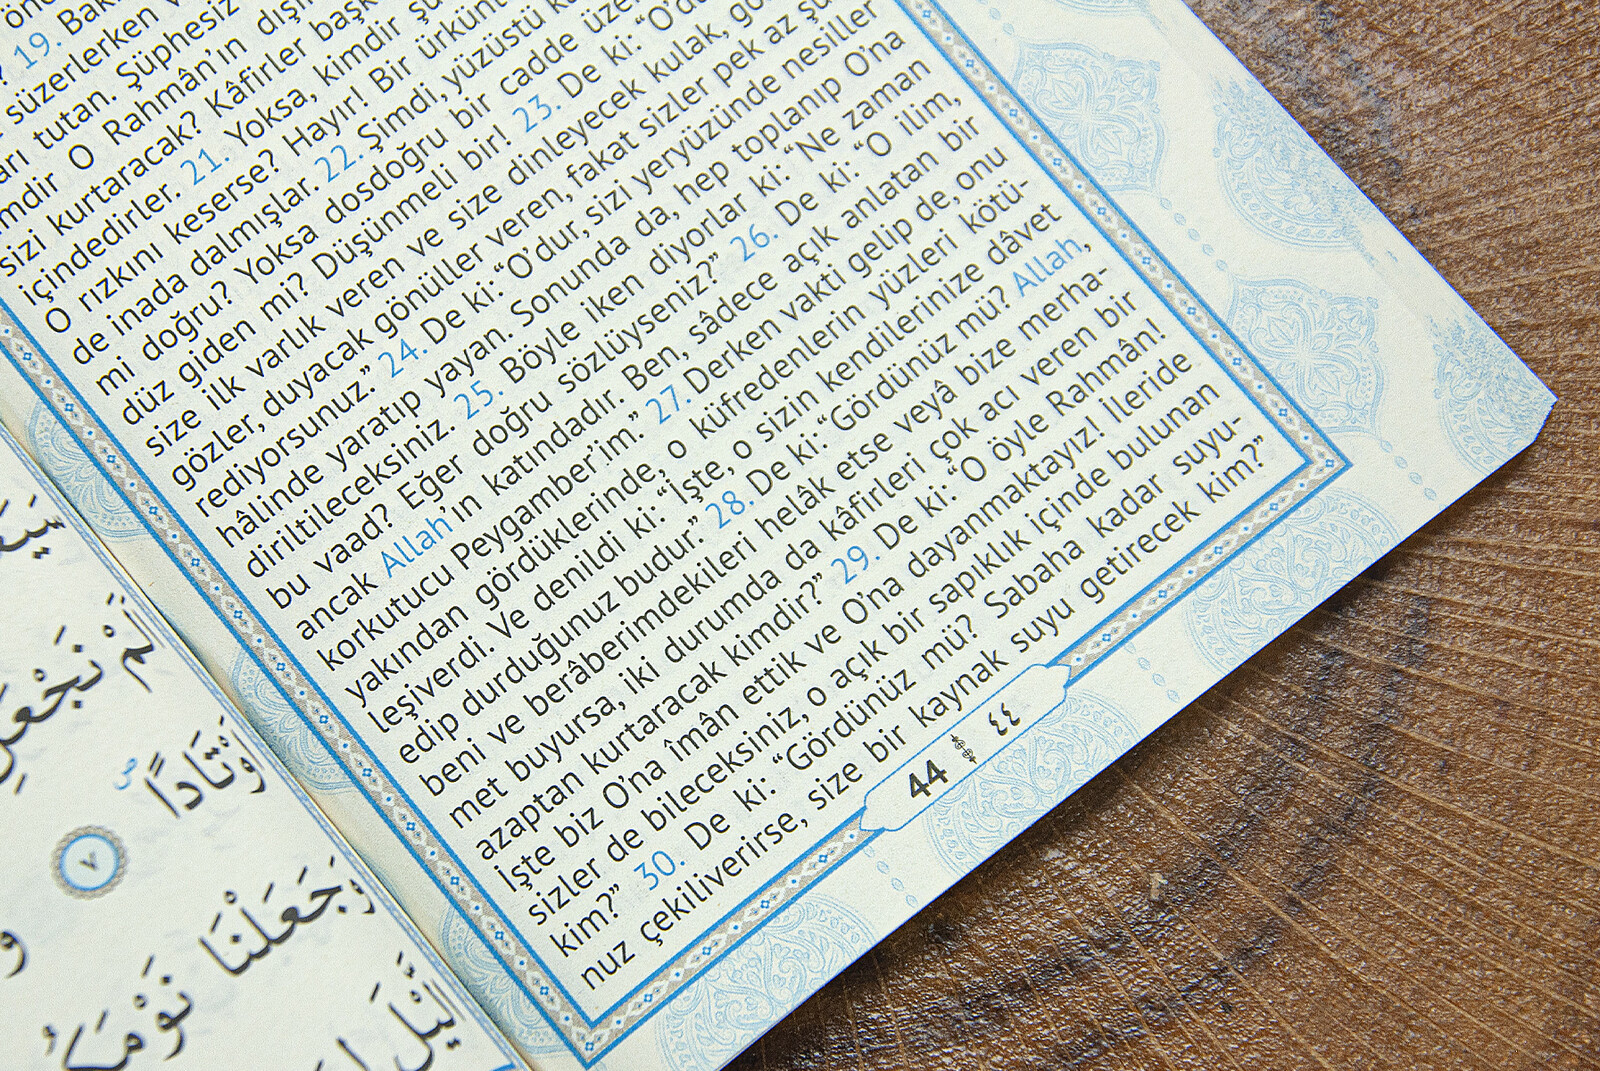 19.
süzerlerken
tutan. Şüphesiz
O Rahmân’ın
sizi kurtaracak? Kâfirler
içindedirler. 21. Yoksa, kimdir
O rızkını keserse? Hayır! Bir
de inada dalmışlar. 22. Şimdi, yüzüstü
mi doğru? Yoksa dosdoğru bir cadde
düz giden mi? Düşünmeli bir! 23. De ki:
size ilk varlık veren ve size dinleyecek kulak,
gözler, duyacak gönüller veren, fakat sizler pek az
rediyorsunuz.” 24. De ki: “O’dur, sizi yeryüzünde nesiller
hâlinde yaratıp yayan. Sonunda da, hep toplanıp O’na
diriltileceksiniz. 25. Böyle iken diyorlar ki: “Ne zaman
bu vaad? Eğer doğru sözlüyseniz?” 26. De ki: “O ilim,
ancak Allah’ın katındadır. Ben, sâdece açık anlatan bir
korkutucu Peygamber’im.” 27. Derken vakti gelip de, onu
yakından gördüklerinde, o küfredenlerin yüzleri kötü-
leşiverdi. Ve denildi ki: “İşte, o sizin kendilerinize dâvet
edip durduğunuz budur.” 28. De ki: “Gördünüz mü? Allah,
beni ve berâberimdekileri helâk etse veyâ bize merha-
met buyursa, iki durumda da kâfirleri çok acı veren bir
azaptan kurtaracak kimdir?” 29. De ki: “O öyle Rahmân!
İşte biz O’na îmân ettik ve O’na dayanmaktayız! İleride
sizler de bileceksiniz, o açık bir sapıklık içinde bulunan
kim?” 30. De ki: “Gördünüz mü? Sabaha kadar suyu-
nuz çekiliverirse, size bir kaynak suyu getirecek kim?”
44 ٤٤
لَمْ نَجْعَلِ
اَوْتَادًا ٧
وَجَعَلْنَا نَوْمَكُ